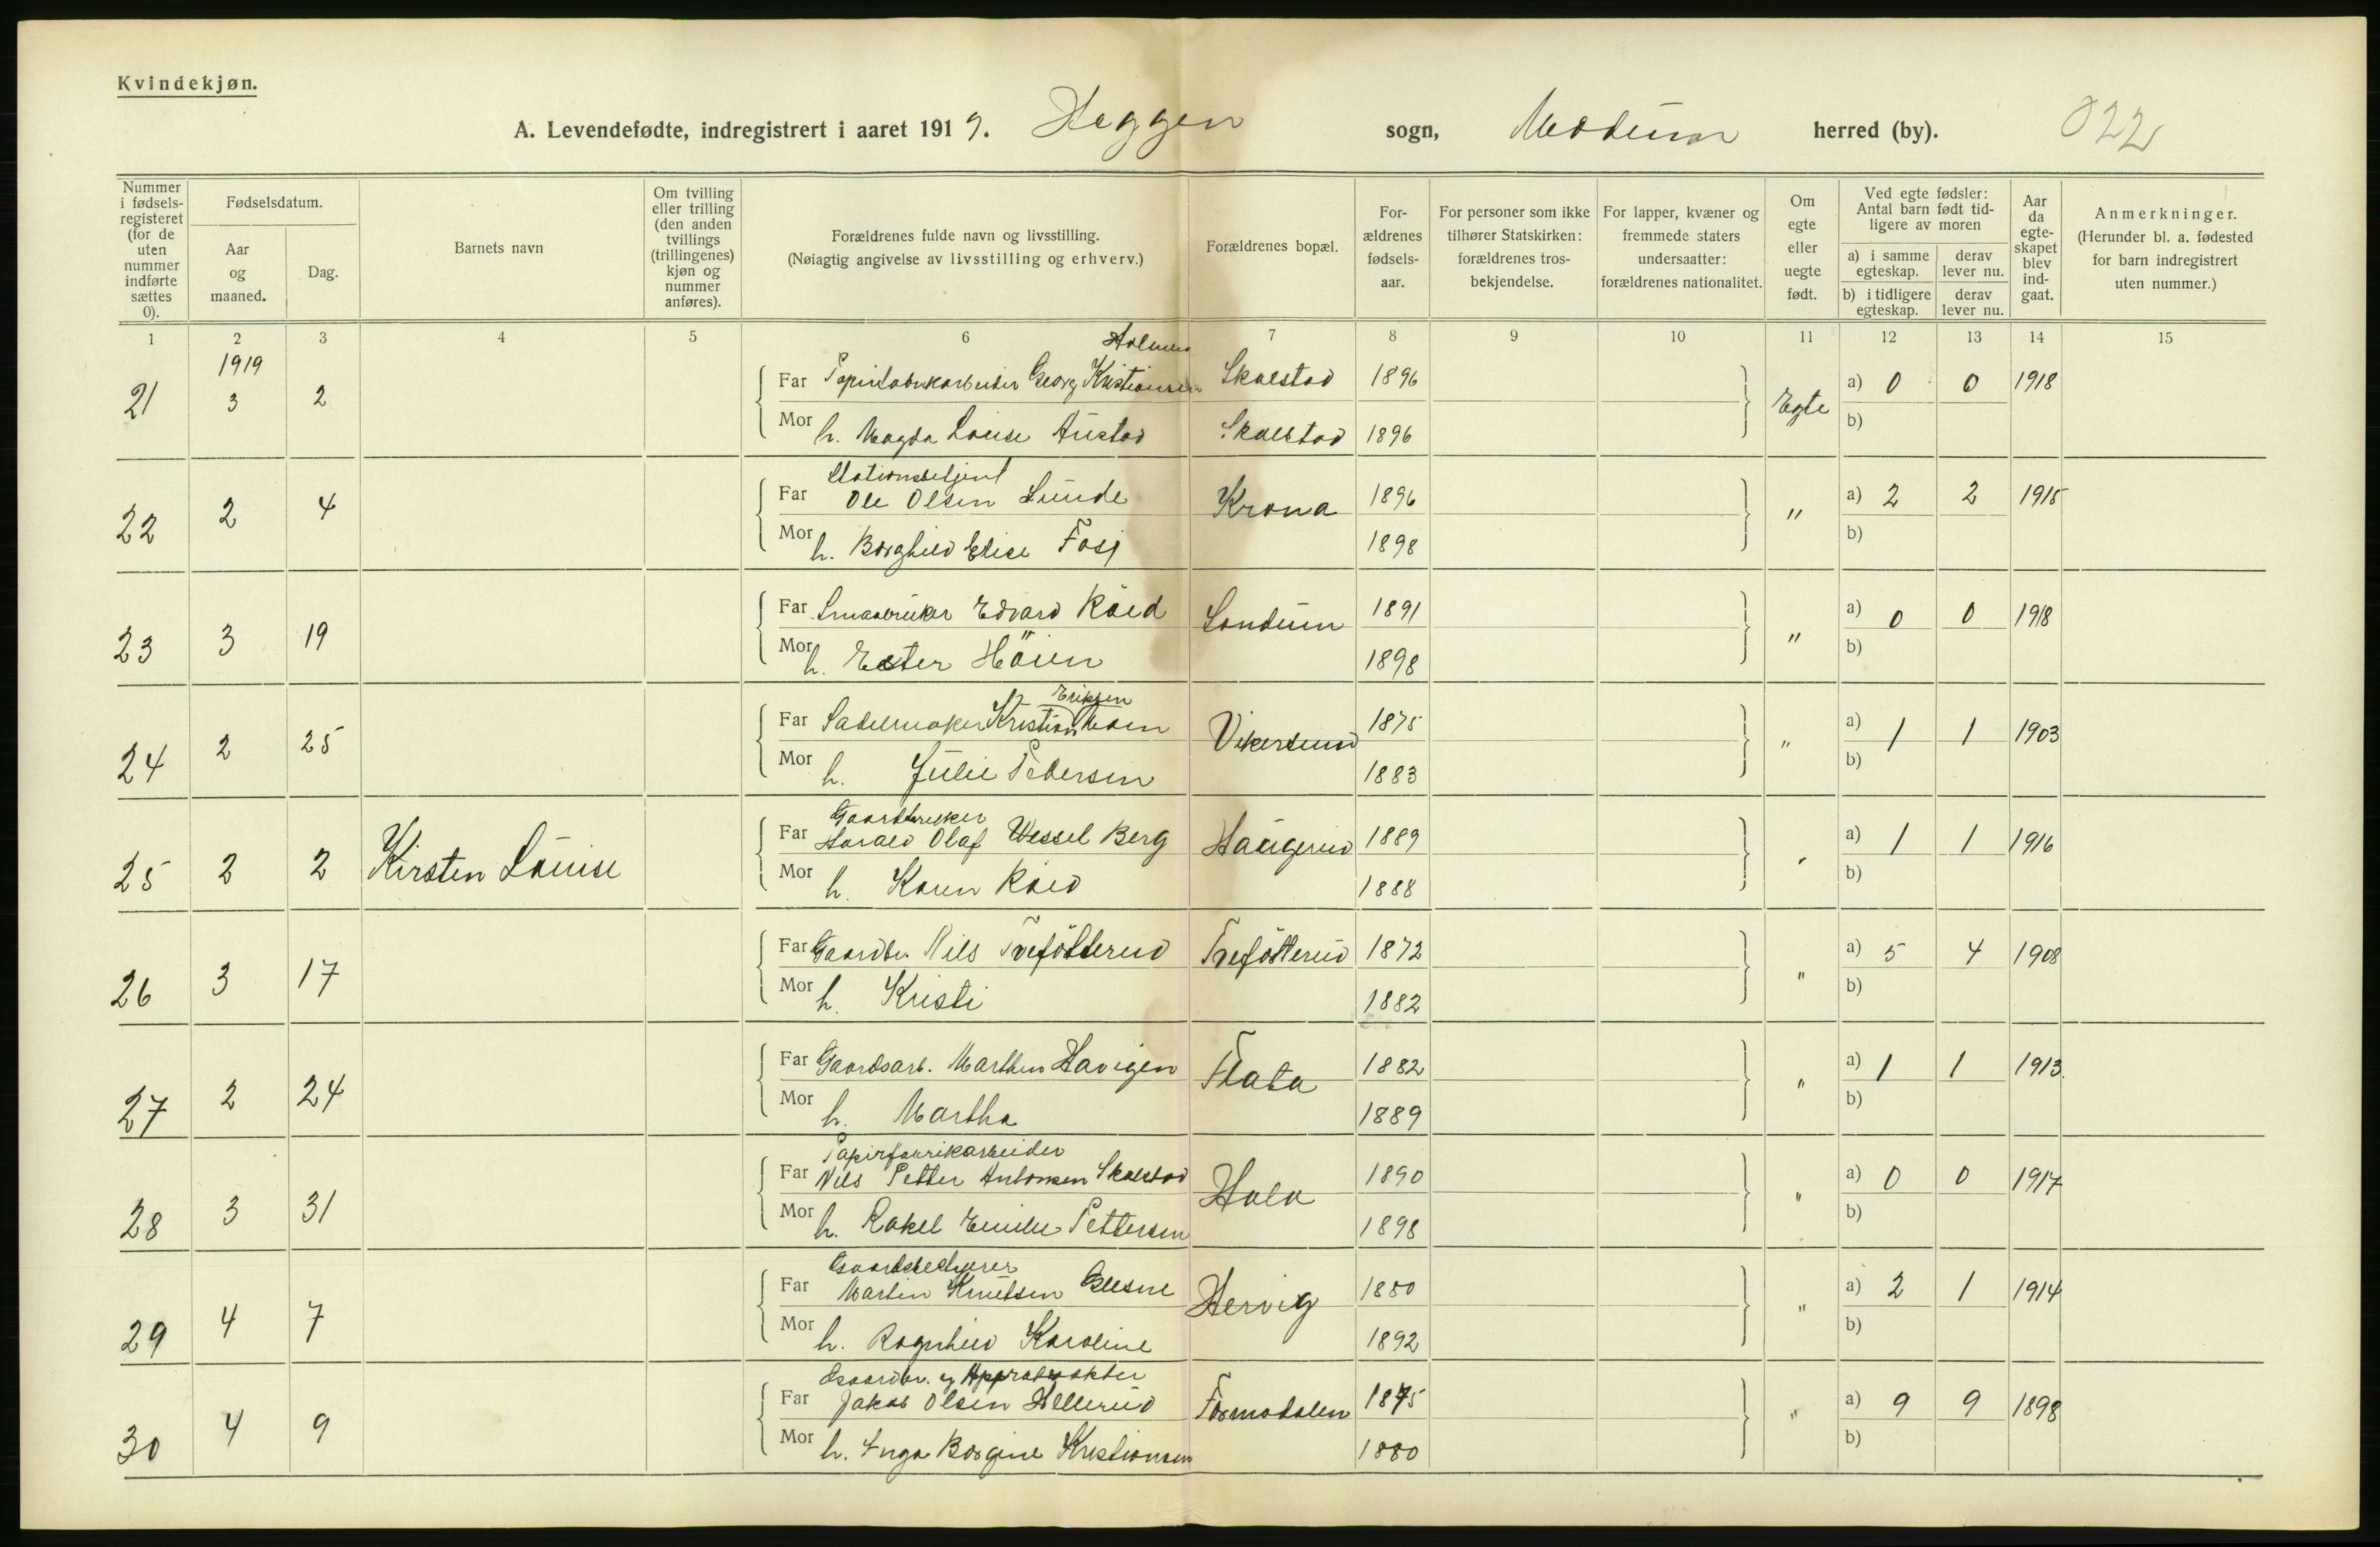 Kvindekjøn.
A. Levendefødte, indregistrert i aaret 1919. Heggen sogn, Modum herred (by). 022
Nummer i fødselsregisteret (for de uten nummer indførte sættes 0).
Fødselsdatum.
Aar og maaned.
Dag.
Barnets navn
Om tvilling eller trilling (den anden tvillings (trillingenes) kjøn og nummer anføres).
Forældrenes fulde navn og livsstilling.
(Nøiagtig angivelse av livsstilling og erhverv.)
Forældrenes bopæl.
Forældrenes fødselsaar.
For personer som ikke tilhører Statskirken: forældrenes trosbekjendelse.
For lapper, kvæner og fremmede staters undersaatter: forældrenes nationalitet.
Om egte eller uegte født.
Ved egte fødsler: Antal barn født tidligere av moren
a) i samme egteskap.
derav lever nu.
b) i tidligere egteskap.
derav lever nu.
Aar da egteskapet blev indgaat.
Anmerkninger.
(Herunder bl. a. fødested for barn indregistrert uten nummer.)
1 2 3 4 5 6 7 8 9 10 11 12 13 14 15
1919
Holmen
21 3 2 Far Papirfabrikarbeider Georg Kristiansen Skalstad 1896 Egte a) 0 0 1918
Mor h. Magda Louise Austad Skalstad 1896 b)
Stationsbetjent
22 2 4 Far Ole Olsen Lunde Krona 1896 " a) 2 2 1915
Mor h. Borghild Elise Fosj 1898 b)
23 3 19 Far Smaabruker Edvard Råed Sondum 1891 " a) 0 0 1918
Mor h. Ester Höien 1898 b)
Eriksen
24 2 25 Far Sadelmaker Kristian Moen Vikersund 1875 " a) 1 1 1903
Mor h. Julie Pedersen 1883 b)
Gaardbruker
25 2 2 Kirsten Louise Far Harald Olaf Wessel Berg Haugerud 1889 " a) 1 1 1916
Mor h. Karen Råed 1888 b)
26 3 17 Far Gaardbr. Nils Trefötterud Trefötterud 1872 " a) 5 4 1908
Mor h. Kristi 1882 b)
27 2 24 Far Gaardsarb. Marthin Havigen Flata 1882 " a) 1 1 1913
Mor h. Martha 1889 b)
Papirfabrikarbeider
28 3 31 Far Nils Petter Antonsen Skalstad Hala 1890 " a) 0 0 1917
Mor h. Rakel Emilie Pettersen 1898 b)
Gaardsbestyrer
29 4 7 Far Martin Knutsen Glesne Hervig 1880 " a) 2 1 1914
Mor h. Ragnhild Karoline 1892 b)
Gaardbr. og
30 4 9 Far Jakob Olsen Hellerud Formodalen 1875 " a) 9 9 1898
Mor h. Inga Borgine Kristiansen 1880 b)